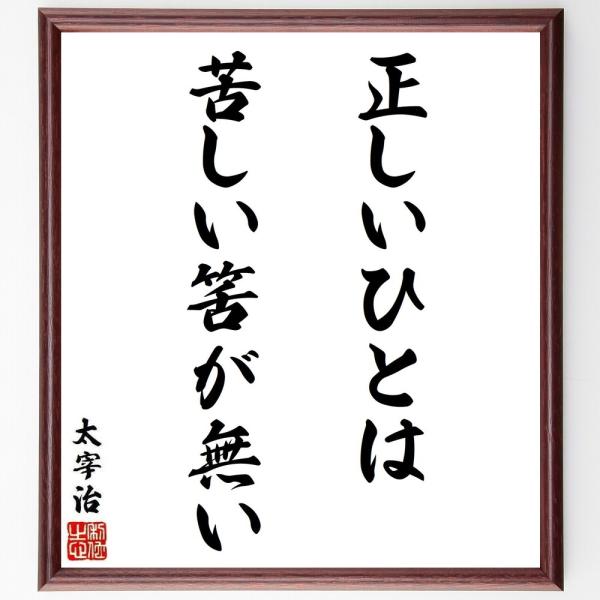 正しいひとは
苦しい筈が無い
太宰治